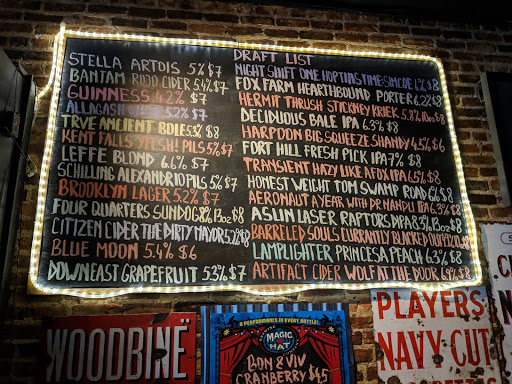 DRAFT LIST
STELLA ARTOIS 5% $7
BANTAM ROJO CIDER 5.4% $7
GUINNESS 4.2% $7
ALLAGASH 5.2% $7
TRVE ANCIENT BOLE 5.3% $8
KENT FALLS PILS 5% $7
LEFFE BLOND 6.6% $7
SCHILLING ALEXANDR 10 PILS 5% $7
BROOKLYN LAGER 5.2% $7
FOUR QUARTERS SUNDOG 8% 13oz $8
CITIZEN CIDER THE DIRTY MAYOR 5.2% $8
BLUE MOON 5.4% $6
DOWNEAST GRAPEFRUIT 5.3% $7
NIGHT SHIFT ONE HOP THIS TIME: SIMCOE $8
FOX FARM HEARTHBOUND PORTER 6.2% $8
HERMIT THRUSH STICKNEY KRIEK 5.8% 10oz $8
DECIDUOUS BALE IPA 6.3% $8
HARPOON BIG SQUEEZE SHANDY 4.5% $6
FORT HILL FRESH PICK IPA 7% $8
TRANSIENT HAZY LIKE A FOX IPA 6.5% $8
HONEST WEIGHT TOM SWAMP ROAD 6% $8
AERONAUT A YEAR WITH DR NANDU IPA 6.3% $8
ASLIN LASER RAPTORS DIPA 8.3% 13oz $8
BARRELED SOULS CURRANTLY BLACKED OUT $8
LAMPLIGHTER PRINCESA PEACH 6.3% $8
ARTIFACT CIDER WOLF AT THE DOOR 6.9% $8
WOODBINE
A PERFORMANCE IN EVERY BOTTLE
MAGIC
HAT
BON & VIV
CRANBERRY $45
PLAYERS
NAVY CUT